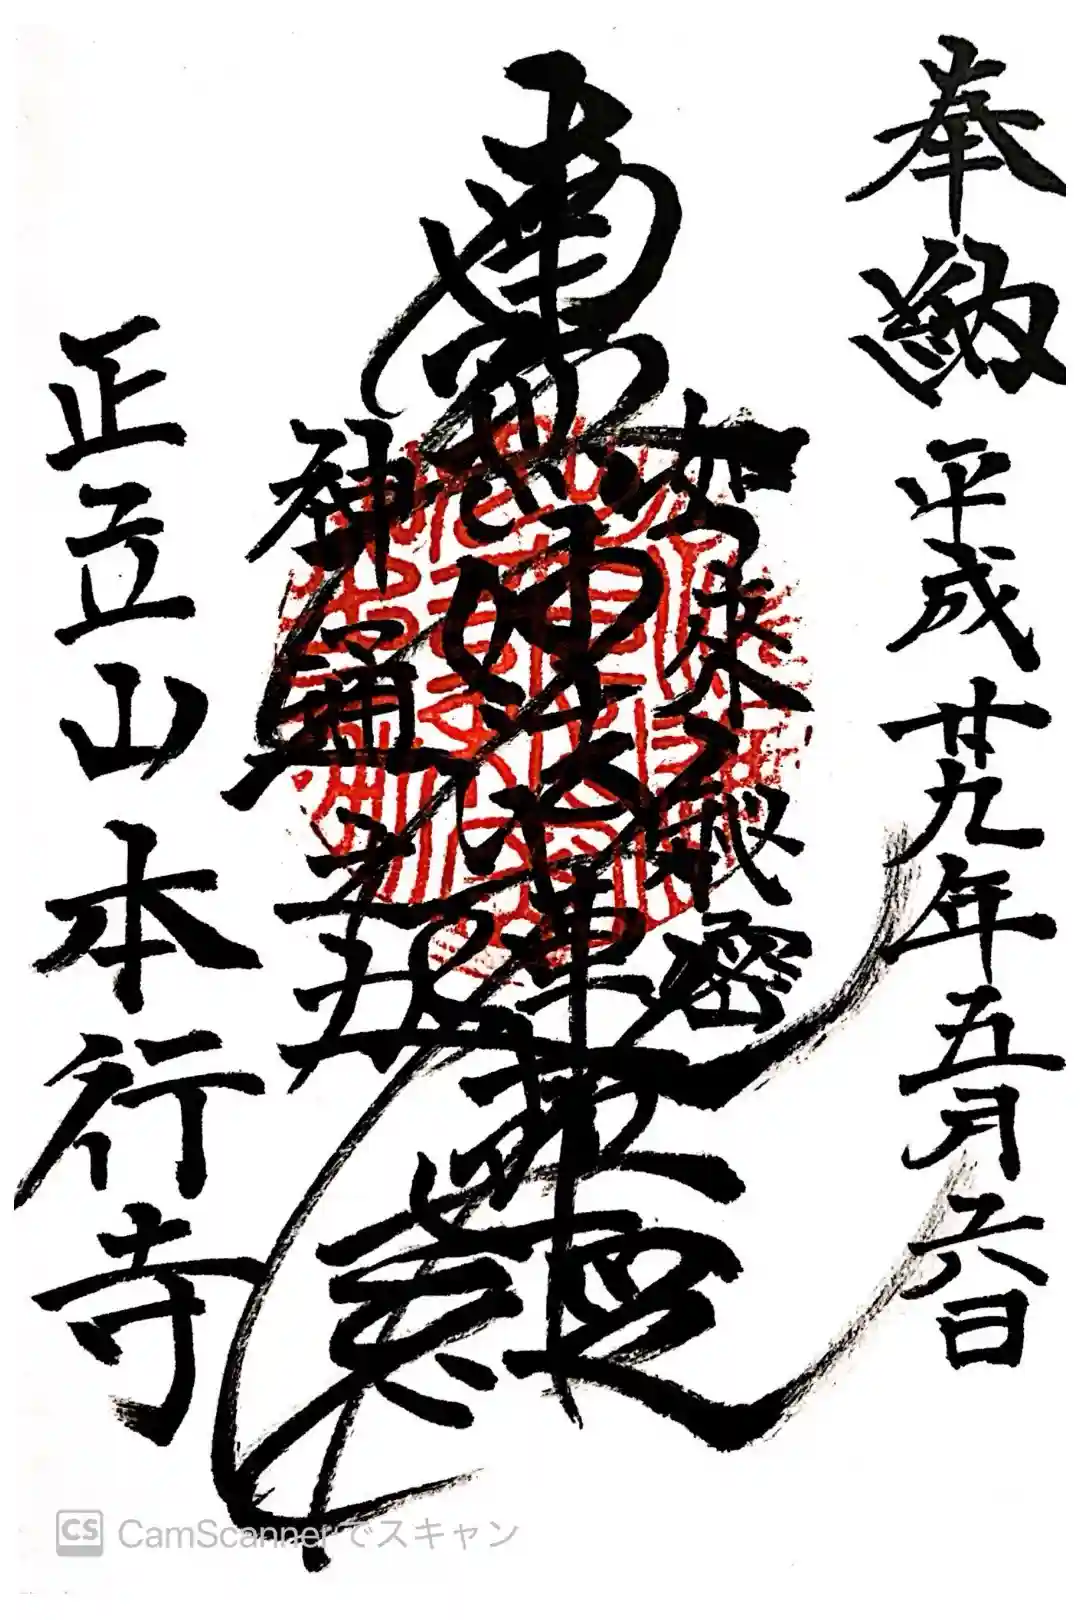 奉納 平成廿九年五月六日
如来秘密
南無妙法蓮華経
神通之力
正立山本行寺
CS CamScannerでスキャン